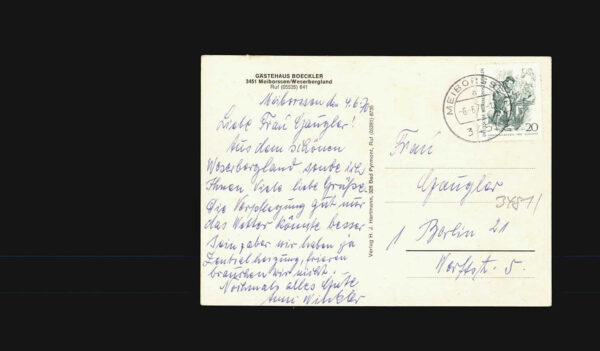 GÄSTEHAUS BOECKLER
3451 Meiborssen/Weserbergland
Ruf (05535) 641
Meiborssen den 4.6.70
Liebe Frau Gaugler!
Aus dem schönen
Weserbergland sende ich
Ihnen Viele liebe Grüße.
Die Verpflegung gut nur
das Wetter könnte besser
sein, aber wir haben ja
Zentralheizung, frieren
brauchen wir nicht.
Nochmals alles Gute
Anni Winkler
Verlag H. J. Hartmann, 328 Bad Pyrmont, Ruf (05281)
MEIBORSSEN
a
-6.-6.70
20
Frau
Gaugler
34811
1 Berlin 21
Werftstr. 5.